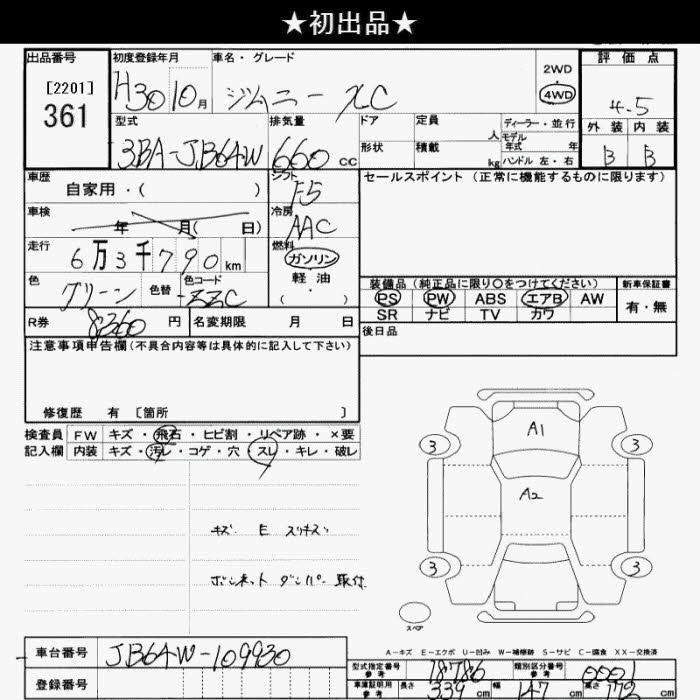 ★初出品★
出品番号 初度登録年月 車名・グレード 2WD 評価点
[2201] H30 10月 ジムニー XC 4WD 4.5
361
型式 排気量 ドア 定員 人 ディーラー・並行 外装 内装
3BA-JB64W 660cc 形状 積載 kg モデル年式 年 B B
ハンドル 左・右
車歴 シフト セールスポイント(正常に機能するものに限ります)
自家用・( ) F5
車検 年 月( 日) 冷房 AAC
走行 6万3千790km 燃料 ガソリン
軽油
( ・ )
色 グリーン 色替 色コード ZZC 装備品(純正品に限り〇をつけてください) 新車保証書
PS PW ABS エアB AW 有・無
SR ナビ TV カワ
R券 8360円 名変期限 月 日 後日品
注意事項申告欄(不具合内容等は具体的に記入して下さい)
修復歴 有 [箇所 ]
検査員 FW キズ・飛石・ヒビ割・リペア跡・×要
記入欄 内装 キズ・汚レ・コゲ・穴 スレ・キレ・破レ
A1
3 3
A2
キズ E スリキズ
ボンネット ダンパー 取付
3 3
スペア
A-キズ E-エクボ U-凹み W-補修跡 S-サビ C-腐食 XX-交換済
車台番号 JB64W-109930
型式指定番号参考 18786 類別区分番号参考 0001
登録番号 車庫証明用参考 長さ 339cm 幅 147cm 高さ 172cm